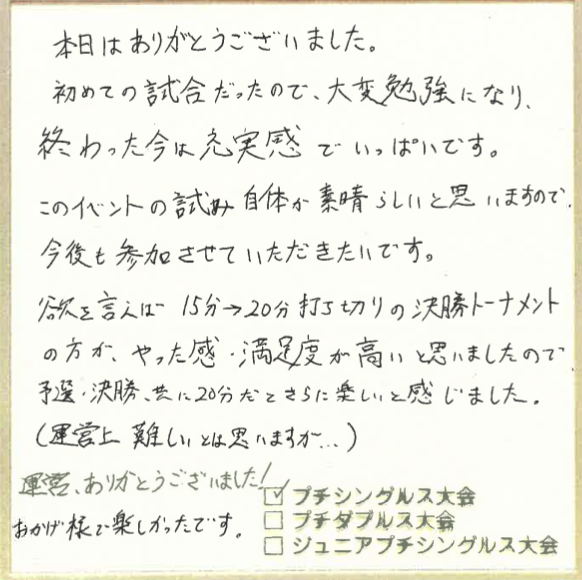 本日はありがとうございました。
初めての試合だったので、大変勉強になり、
終わった今は充実感でいっぱいです。
このイベントの試み自体が素晴らしいと思いますので、
今後も参加させていただきたいです。
欲を言えば 15分→20分打ち切りの決勝トーナメント
の方が、やった感・満足度が高いと思いましたので
予選・決勝、共に20分だとさらに楽しいと感じました。
(運営上 難しいとは思いますが…)
運営、ありがとうございました!
おかげ様で楽しかったです。
☑ プチシングルス大会
□ プチダブルス大会
□ ジュニアプチシングルス大会